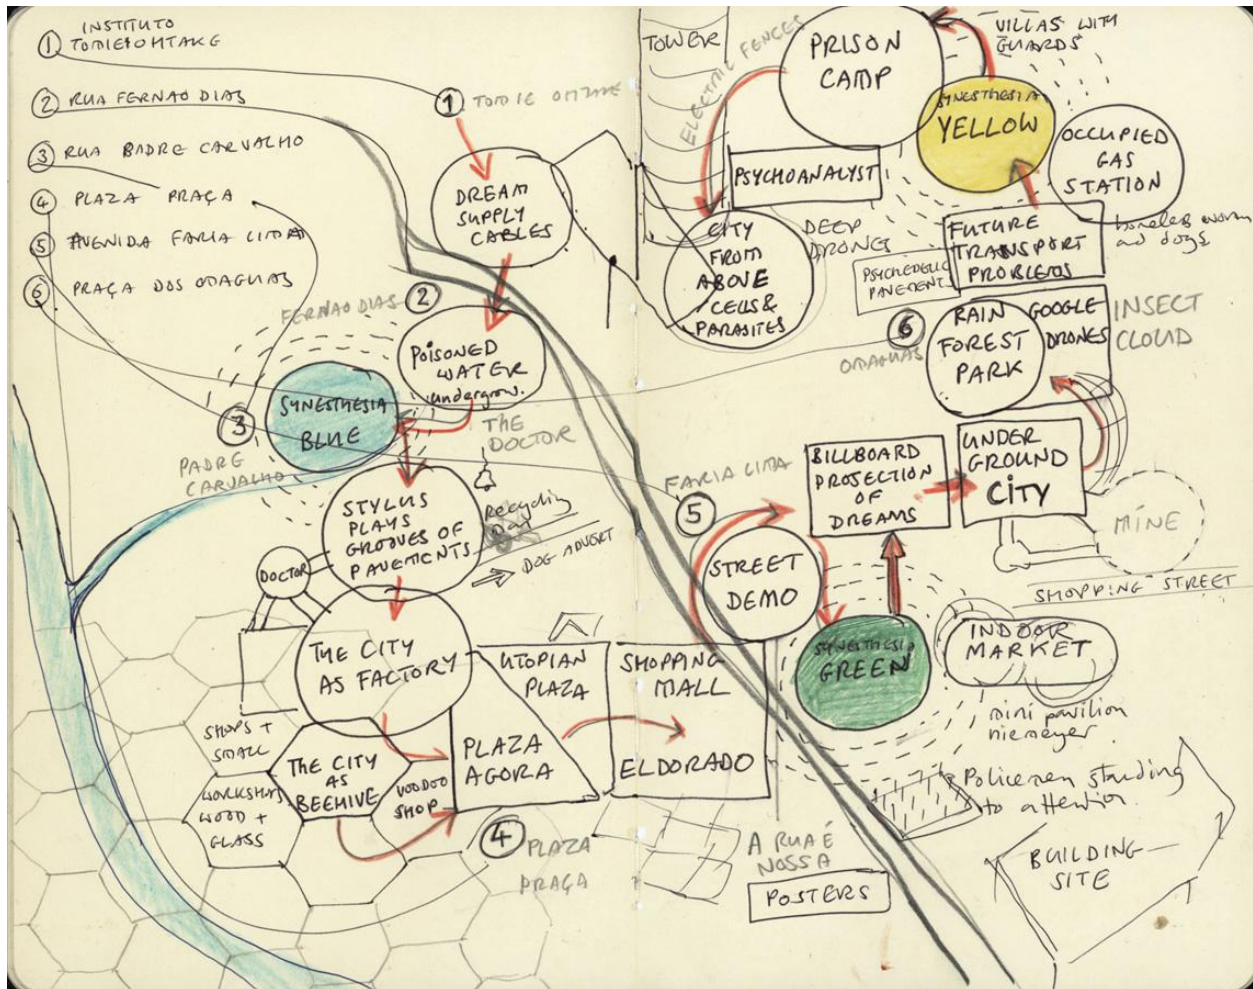 1 INSTITUTO
TOMIE OHTAKE
2 RUA FERNAO DIAS
3 RUA PADRE CARVALHO
4 PLAZA PRAÇA
5 AVENIDA FARIA LIMA
6 PRAÇA DOS OMAGUAS
1 TOMIE OHTAKE
DREAM
SUPPLY
CABLES
FERNAO DIAS
2
POISONED
WATER
undergrow.
SYNESTHESIA
BLUE
3
PADRE
CARVALHO
THE
DOCTOR
STYLUS
PLAYS
GROOVES OF
PAVEMENTS
Recycling
DOG ADVERT
DOCTOR
THE CITY
AS FACTORY
SHOPS +
SMALL
WORKSHOPS
WOOD +
GLASS
THE CITY
AS
BEEHIVE
VOODOO
SHOP
UTOPIAN
PLAZA
PLAZA
AGORA
4 PLAZA
PRAÇA
SHOPPING
MALL
ELDORADO
TOWER
ELECTRIC FENCES
PRISON
CAMP
VILLAS WITH
GUARDS
SYNESTHESIA
YELLOW
OCCUPIED
GAS
STATION
homeless woman
and dogs
PSYCHOANALYST
CITY
FROM
ABOVE
CELLS &
PARASITES
DEEP
DRONES
PSYCHEDELIC
PAVEMENT
FUTURE
TRANSPORT
PROBLEMS
6
OMAGUAS
RAIN
FOREST
PARK
GOOGLE
DRONES
INSECT
CLOUD
FARIA LIMA
5
BILLBOARD
PROJECTION
OF
DREAMS
UNDER
GROUND
CITY
MINE
SHOPPING STREET
STREET
DEMO
SYNESTHESIA
GREEN
INDOOR
MARKET
mini pavilion
niemeyer
Policemen standing
to attention.
A RUA É
NOSSA
POSTERS
BUILDING
SITE